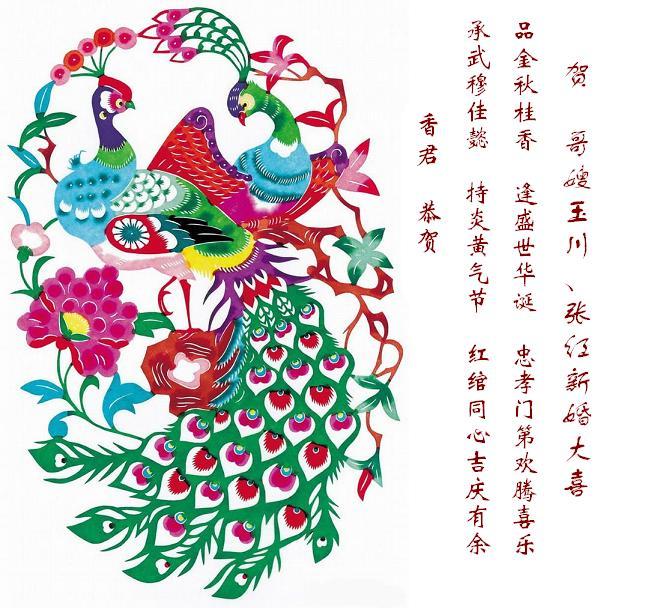 贺 哥嫂玉川、张红新婚大喜
品金秋桂香 逢盛世华诞 忠孝门第欢腾喜乐
承武穆佳懿 持炎黄气节 红绾同心吉庆有余
香君 恭贺